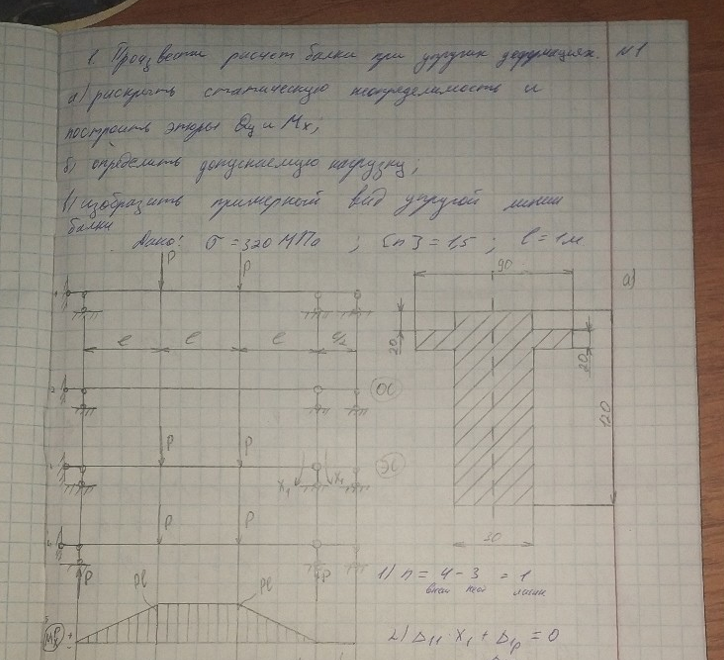 1. Произвести расчет балки при упругих деформациях. N1
а) раскрыть статическую неопределимость и
построить эпюры Qy и Mx;
б) определить допускаемую нагрузку;
в) изобразить примерный вид упругой линии
балки
Дано: σ = 320 МПа ; [n] = 1,5 ; l = 1 м
P P
90
а)
l l l l/2
20 20
ОС
120
P P
ЭС
X₁ X₁
P P
30
P P
1) n = 4 - 3 = 1
Pl Pl
MP
+
2) Δ₁₁ · X₁ + Δ₁p = 0